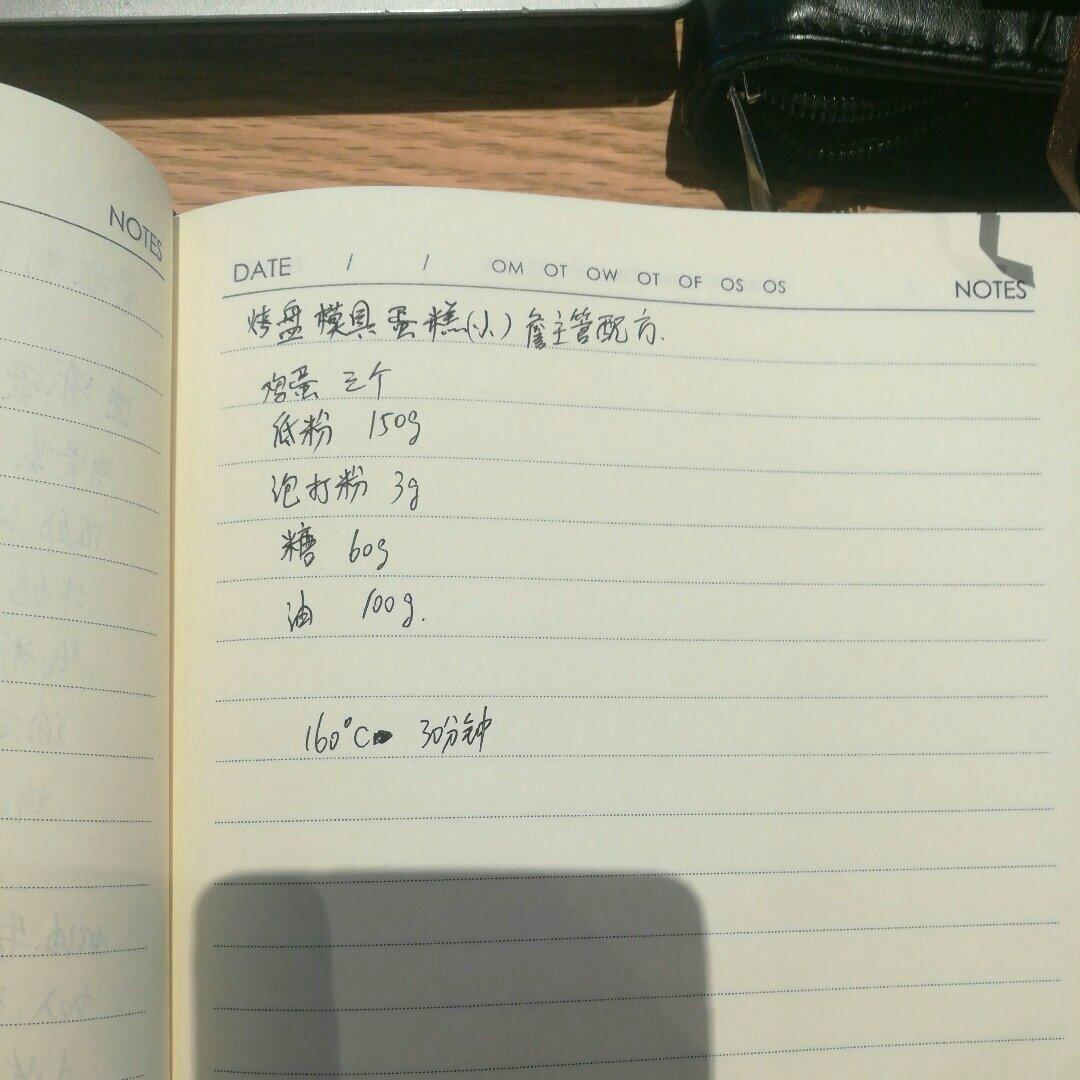 NOTES
DATE / / OM OT OW OT OF OS OS NOTES
烤盘模具蛋糕(小) 詹主管配方.
鸡蛋 三个
低粉 150g
泡打粉 3g
糖 60g
油 100g.
160°C 30分钟